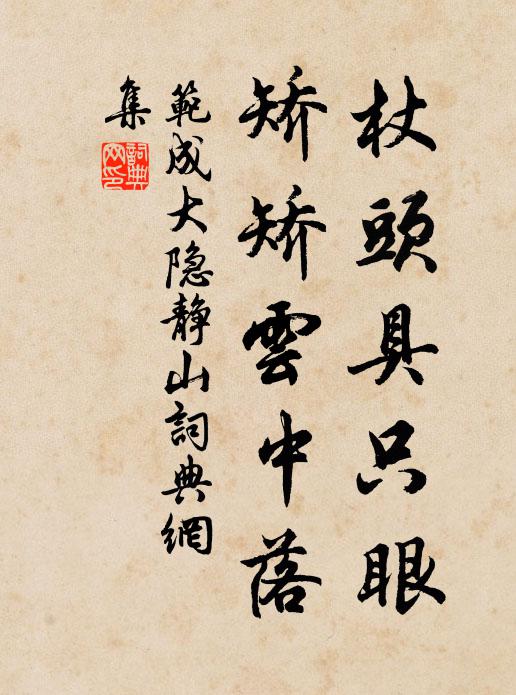 杖頭具只眼
矯矯雲中落
範成大隐静山詞典網
集
詞典網印